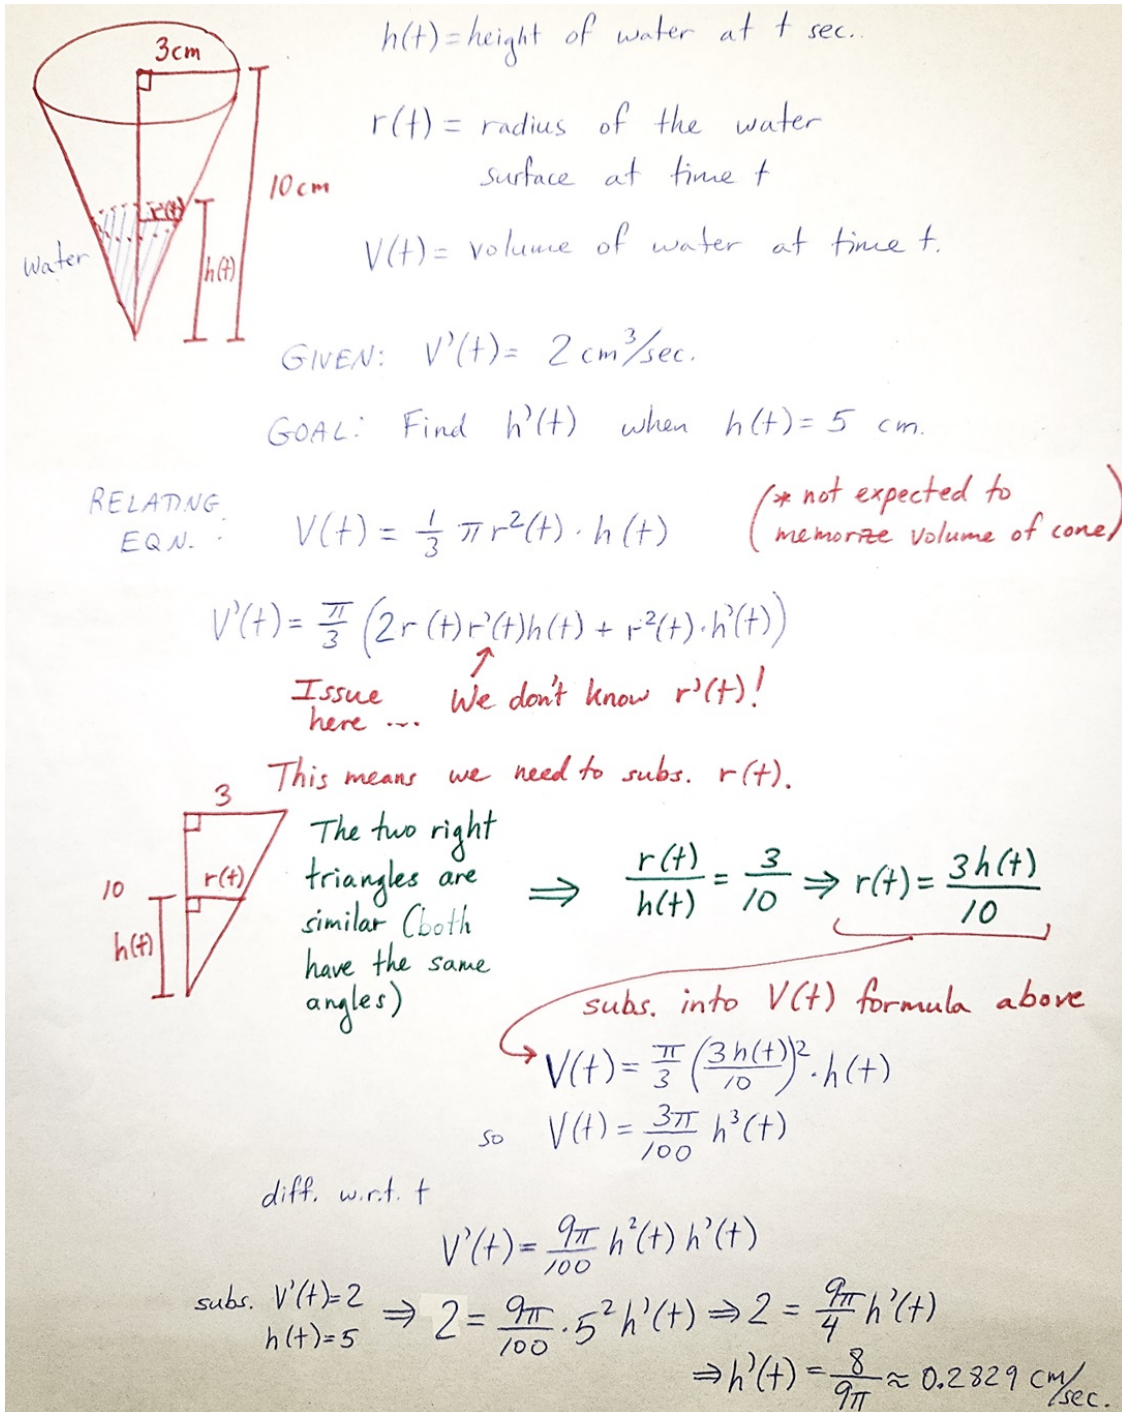 3cm
h(t) = height of water at t sec..
r(t) = radius of the water
surface at time t
10cm
r(t)
h(t)
water
V(t) = volume of water at time t.
GIVEN: V'(t) = 2 cm³/sec.
GOAL: Find h'(t) when h(t) = 5 cm.
RELATING
EQN. :
V(t) = 1/3 π r²(t) · h(t)
(* not expected to
memorize volume of cone)
V'(t) = π/3 (2r(t)r'(t)h(t) + r²(t)·h'(t))
Issue
here ...
We don't know r'(t)!
This means we need to subs. r(t).
3
10
r(t)
h(t)
The two right
triangles are
similar (both
have the same
angles)
⇒ r(t)/h(t) = 3/10 ⇒ r(t) = 3h(t)/10
subs. into V(t) formula above
V(t) = π/3 (3h(t)/10)² · h(t)
so V(t) = 3π/100 h³(t)
diff. w.r.t. t
V'(t) = 9π/100 h²(t) h'(t)
subs. V'(t)=2
h(t)=5
⇒ 2 = 9π/100 · 5² h'(t) ⇒ 2 = 9π/4 h'(t)
⇒ h'(t) = 8/9π ≈ 0.2829 cm/sec.